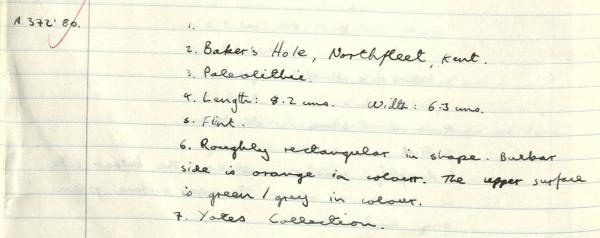 A.372'80.
1.
2. Baker's Hole, Northfleet, Kent.
3. Paleolithic.
4. Length: 8.2 cms. Width: 6.3 cms.
5. Flint.
6. Roughly rectangular in shape. Bulbar
side is orange in colour. The upper surface
is green/grey in colour.
7. Yates Collection.